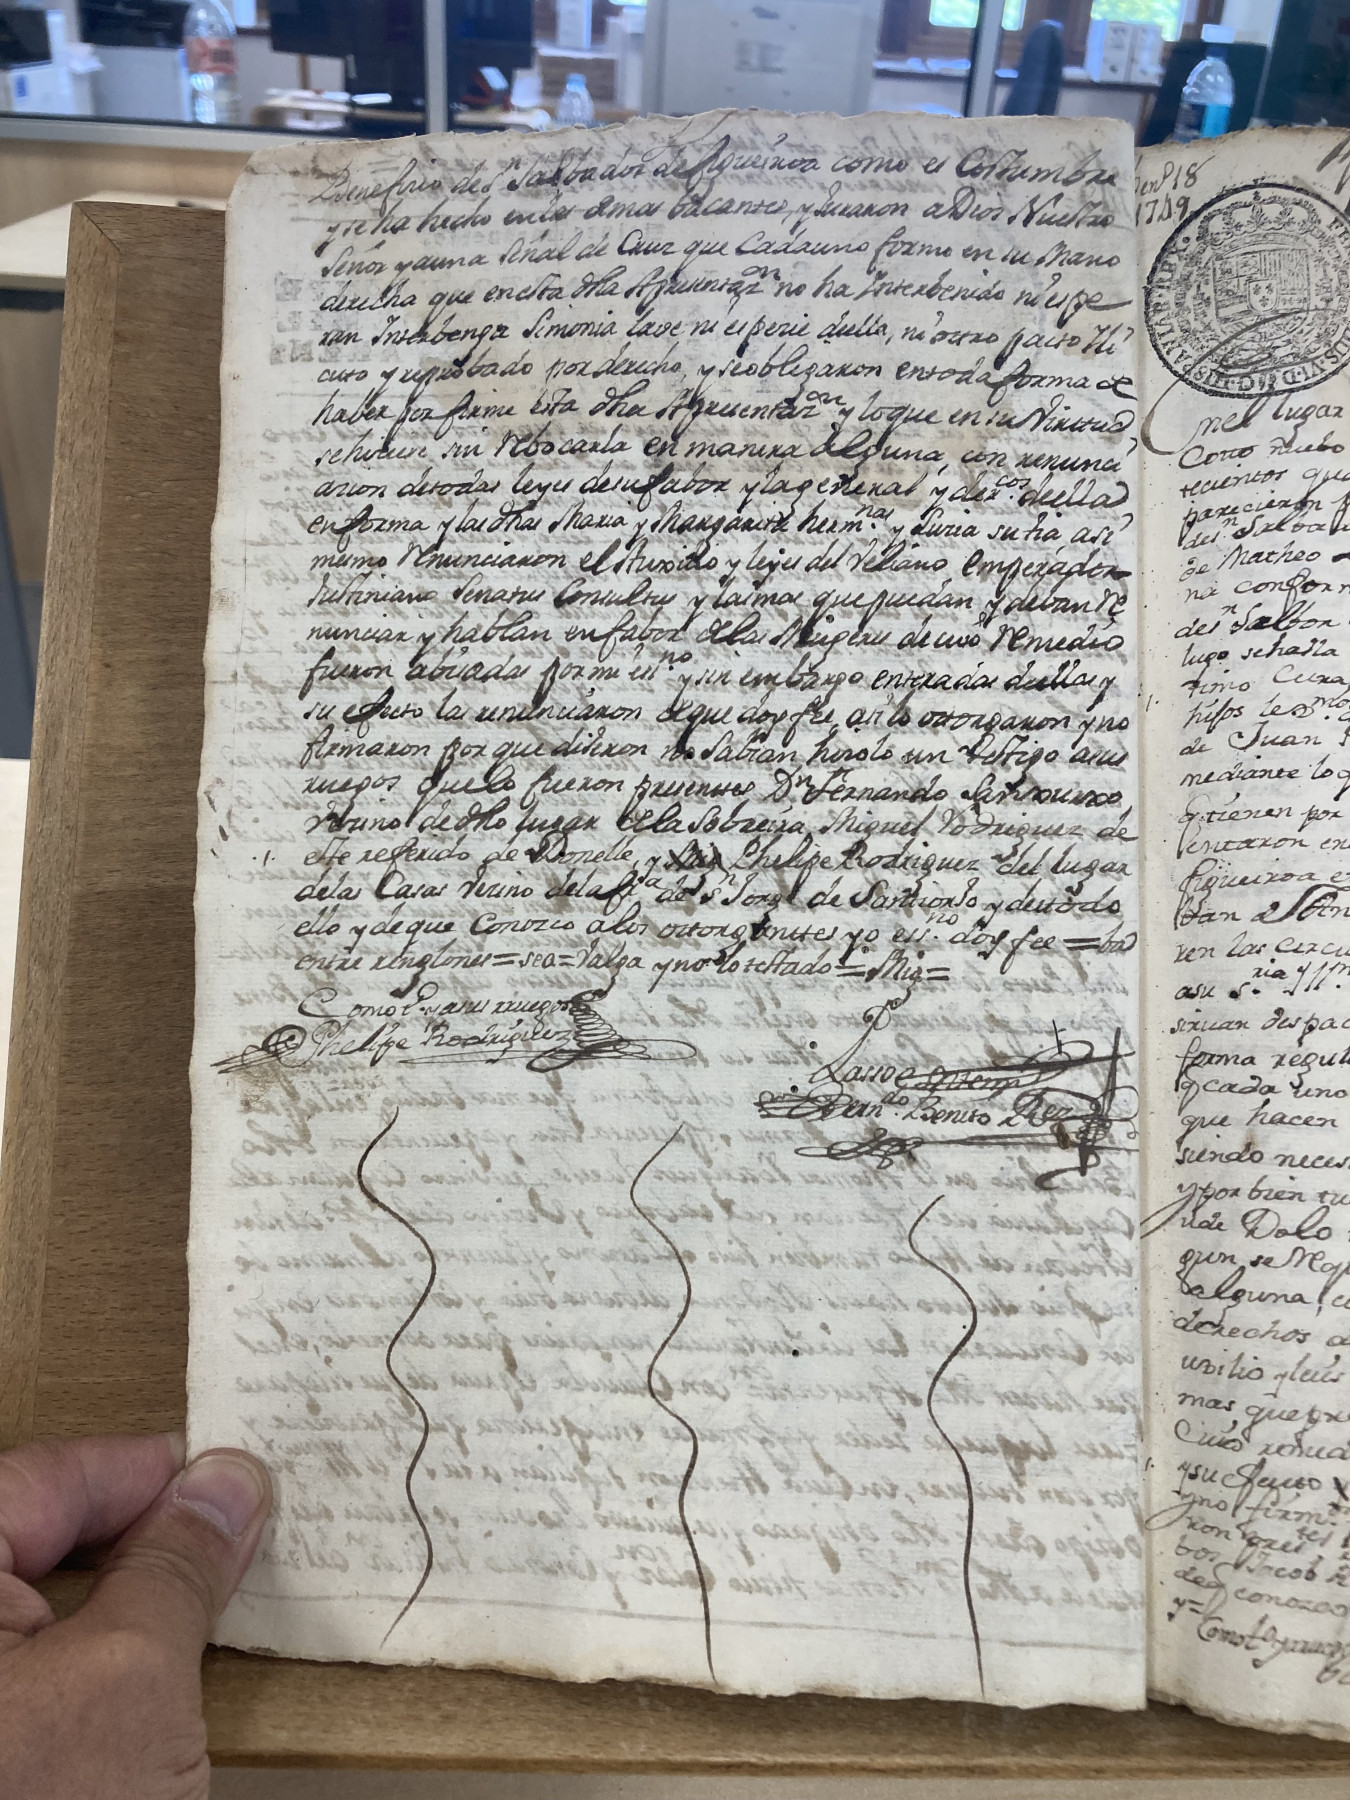 Benefizio de Sn Salbador de figueiroa como es Costumbre
y se ha hecho en las demas bacantes, y Juraron a Dios Nuestro
Señor y a una señal de Cruz que Cada uno formo en su Mano
derecha que en esta dha Apresentazon no ha Interbenido ni espe
ran Interbenga Simonia labe ni espezie della, ni otro pacto Ili
cito y reprobado por derecho, y se obligaron en toda forma de
haber por firme esta dha Apresentazon y lo que en su Virttud
se hiciere sin rebocarla en manera alguna, con renunci
azion de todas leyes de su fabor y la general y derecos. della
en forma y las dhas Maria y Margarita hermnas y Luzia su tia asi
mismo renunciaron el Auxilio y leyes del Veliano emperador
Justiniano Senatus Consultus y las mas que puedan y deban re
nunciar y hablan en fabor de las Mugeres de cuio remedio
fueron abisadas por mi esno. y sin embargo enteradas dellas y
su efecto las renunciaron de que doy fee, asi lo ottorgaron y no
firmaron por que dixeron no Sabian hizolo un testigo a sus
ruegos que lo fueron presentes Dn Fernando Sanxurxo,
Vezino de dho lugar de la Sobreira, Miguel Rodriguez de
este referido de Donelle, y Phelipe Rodriguez del lugar
de las Casas Vezino de la fra de Sn Jorge de Santiorxo y de ttodo
ello y de que Conozco a los ottorgantes yo essno. doy fee = ba
entre renglones = sea = Valga y no lo testado = Mig =
Como to. y a sus ruegos
Phelipe Rodriguez
Passo ante mi
Berndo. Benito Rez
enero 18
1749
HISPANIAR
nel lugar
Coto
de Sn Salba
de Matheo
na confor
de Sn Salbor
lugo se halla
timo Cura
hijos lexmos
de Juan
mediante lo q
q tienen por
sentaron en
figueiroa
ren las circu
a su s.ria Yll
siruan despac
forma regul
q cada uno
que hacen
siendo neces
y por bien tu
de Dolo
gun se Req
alguna, c
derechos
uxilio y leies
mas que pu
Cuio remed
y su efecto
y no firm
ron pres.tes
bos Jacob
de q conozco
y =
Como to y a ruego